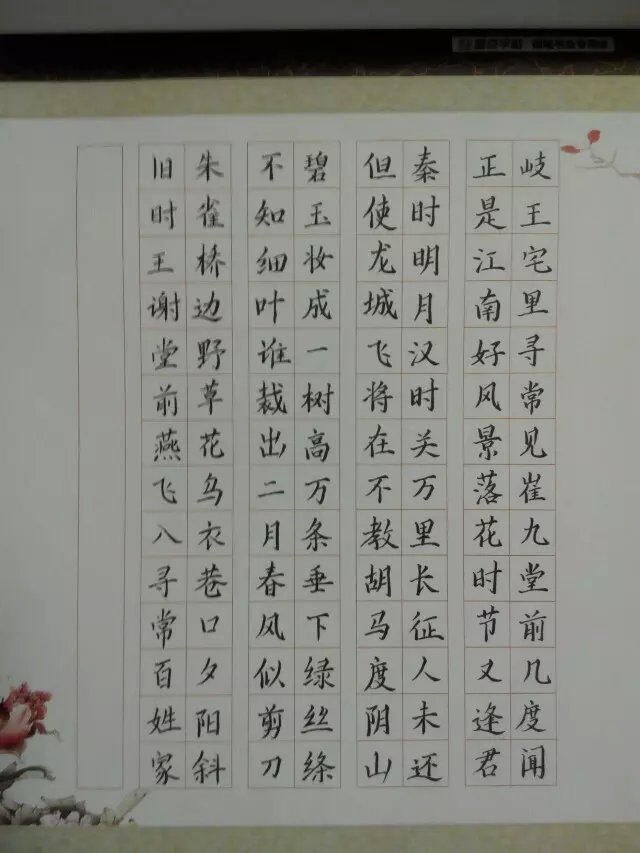 岐王宅里寻常见崔九堂前几度闻
正是江南好风景落花时节又逢君
秦时明月汉时关万里长征人未还
但使龙城飞将在不教胡马度阴山
碧玉妆成一树高万条垂下绿丝绦
不知细叶谁裁出二月春风似剪刀
朱雀桥边野草花乌衣巷口夕阳斜
旧时王谢堂前燕飞入寻常百姓家